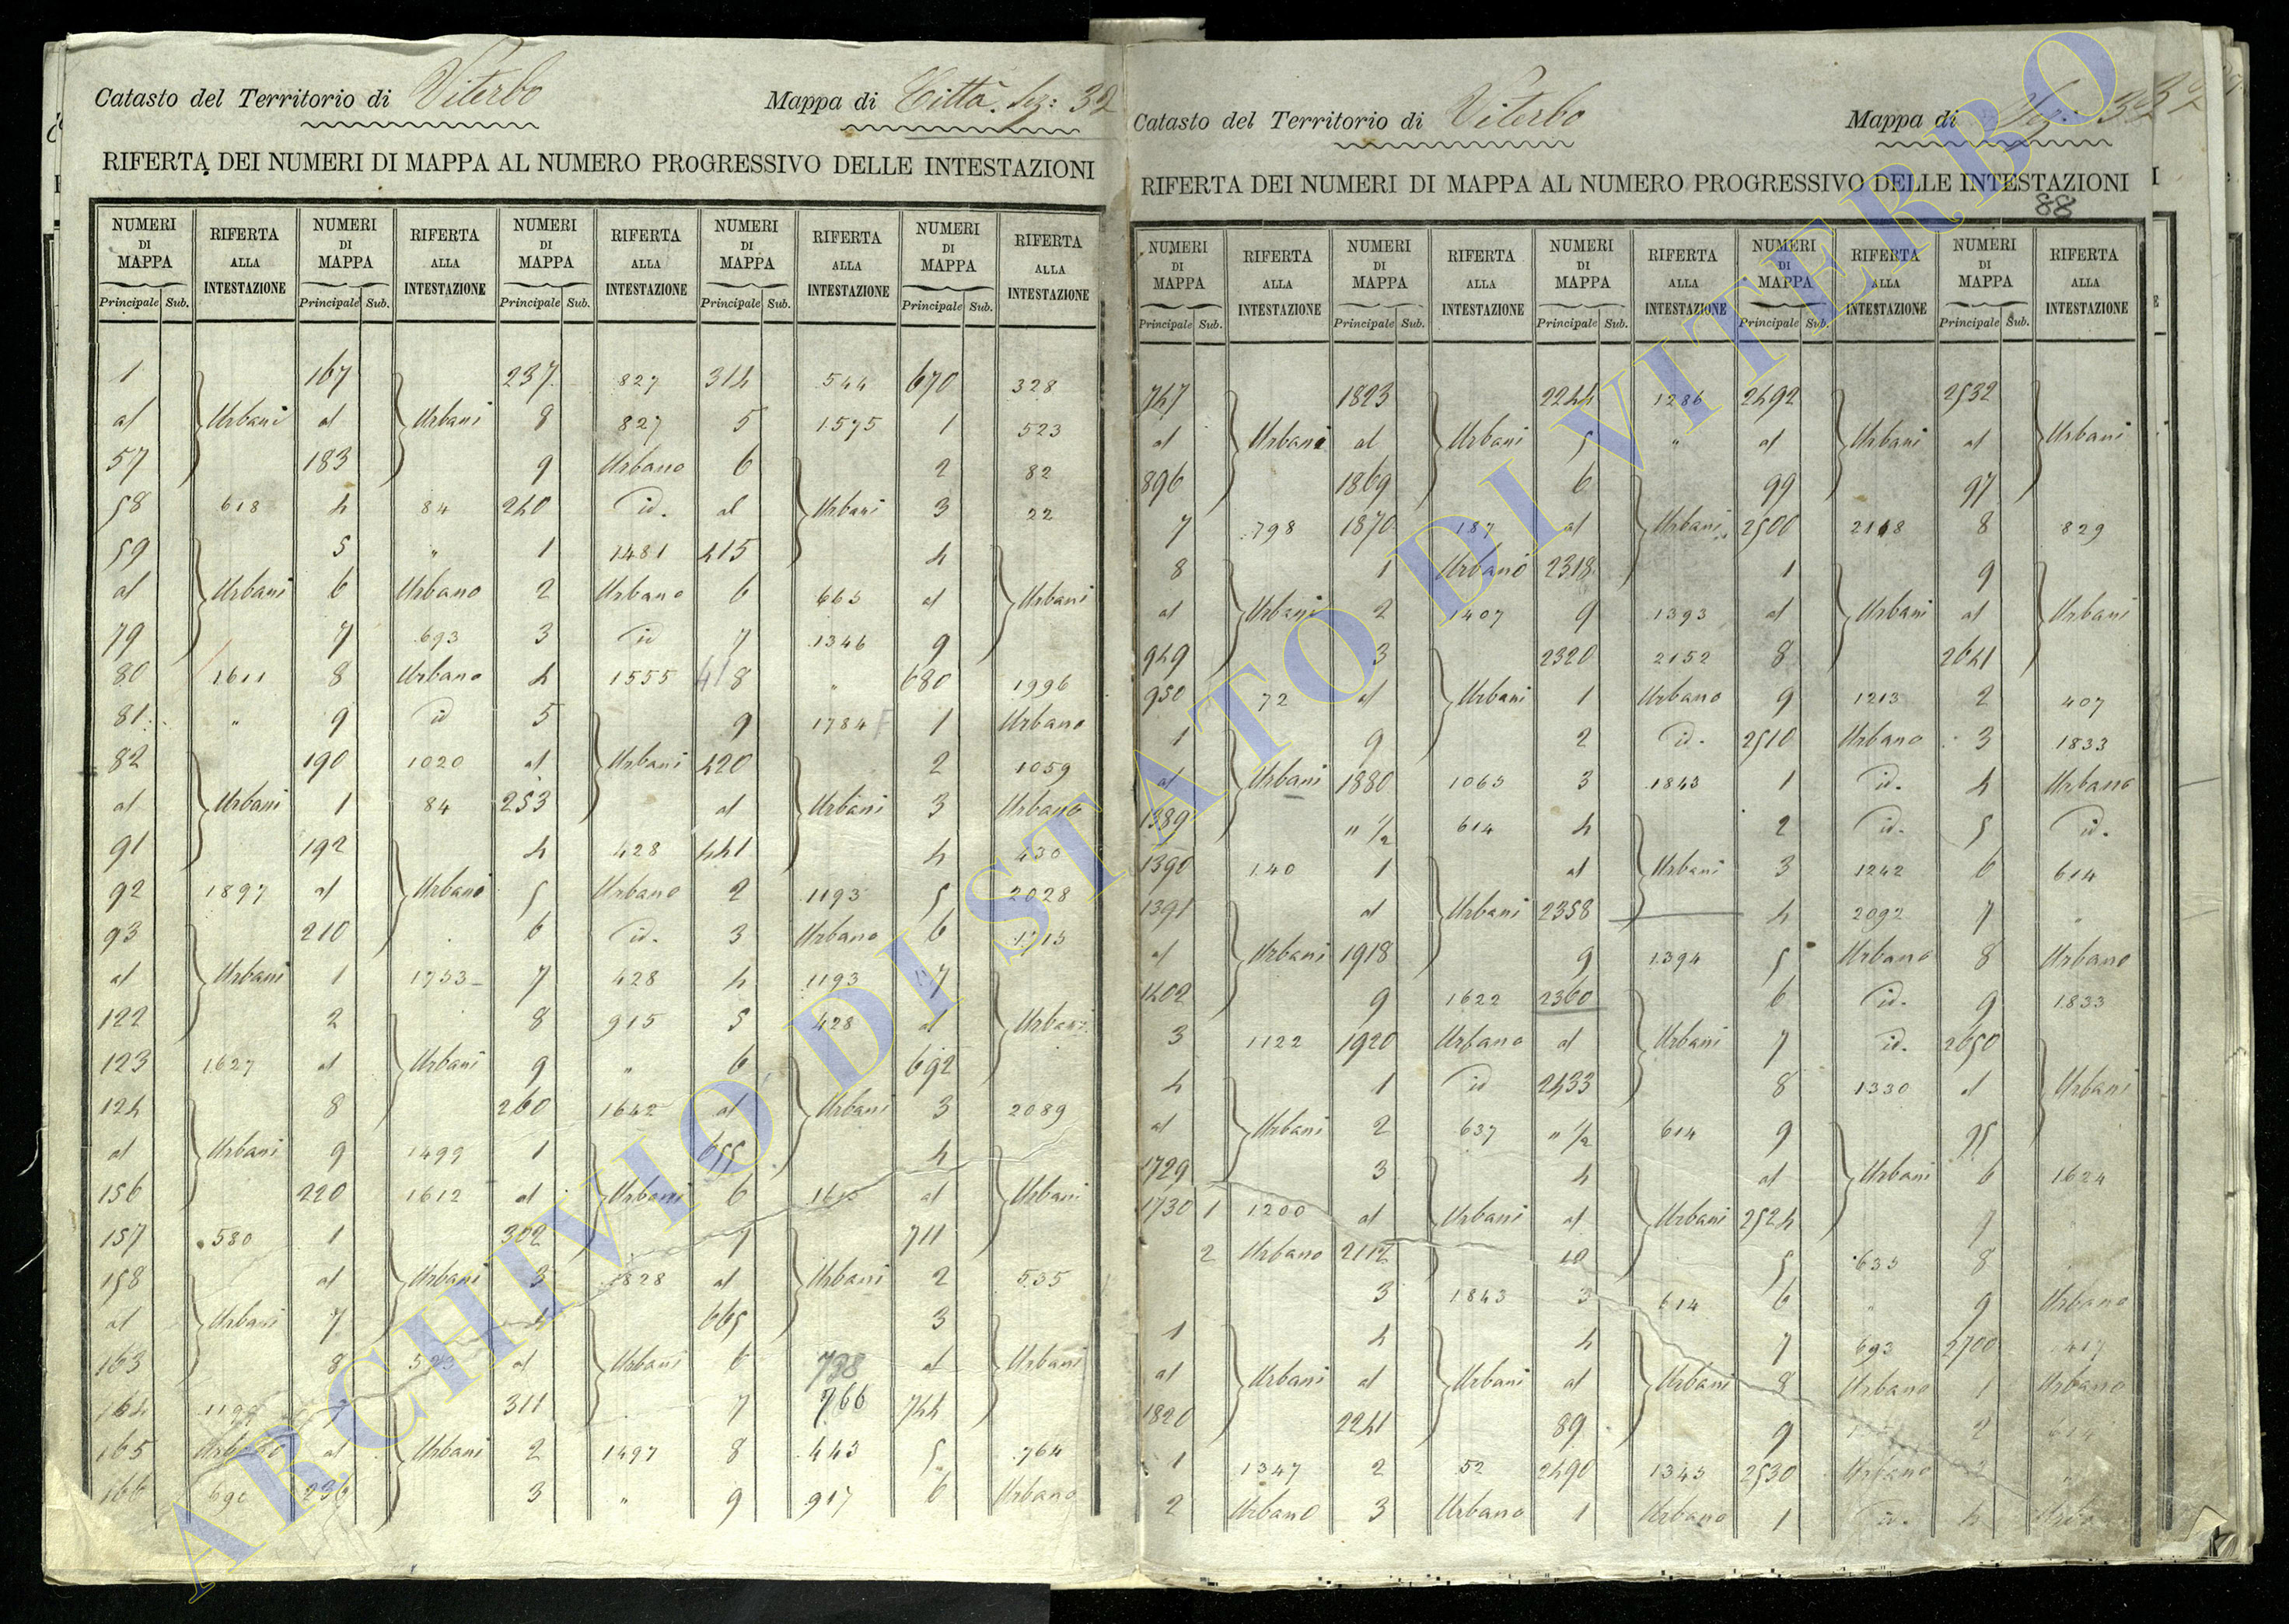 Catasto del Territorio di Viterbo Mappa di Città. Sez: 32
RIFERTA DEI NUMERI DI MAPPA AL NUMERO PROGRESSIVO DELLE INTESTAZIONI
NUMERI DI MAPPA RIFERTA ALLA INTESTAZIONE NUMERI DI MAPPA RIFERTA ALLA INTESTAZIONE NUMERI DI MAPPA RIFERTA ALLA INTESTAZIONE NUMERI DI MAPPA RIFERTA ALLA INTESTAZIONE NUMERI DI MAPPA RIFERTA ALLA INTESTAZIONE
Principale Sub. Principale Sub. Principale Sub. Principale Sub. Principale Sub.
1 167 237 827 314 544 670 328
al Urbani al Urbani 8 827 5 1575 1 523
57 183 9 Urbano 6 2 82
58 618 4 84 240 id. al Urbani 3 22
59 5 " 1 1481 415 4
al Urbani 6 Urbano 2 Urbano 6 665 al Urbani
79 7 693 3 id 7 1346 9
80 1611 8 Urbano 4 1555 8 " 680 1996
81 " 9 id 5 9 1784 1 Urbano
82 190 1020 al Urbani 420 2 1059
al Urbani 1 84 253 al Urbani 3 Urbano
91 192 4 428 441 4 430
92 1897 al Urbani 5 Urbano 2 1193 5 2028
93 210 6 id. 3 Urbano 6 1715
al Urbani 1 1753 7 428 4 1193 7
122 2 8 915 5 428 al Urbani
123 1627 al Urbani 9 " 6 692
124 8 260 1642 al Urbani 3 2089
al Urbani 9 1499 1 655 4
156 220 1612 al Urbani 6 al Urbani
157 580 1 302 7 711
158 al Urbani 3 1828 al Urbani 2 535
al Urbani 7 4 665 3
163 8 al Urbani 6 738 al Urbani
164 311 7 766 744
165 Urbano al Urbani 2 1497 8 443 5 764
166 236 3 " 9 917 6 Urbano
Catasto del Territorio di Viterbo Mappa di Sez: 32
RIFERTA DEI NUMERI DI MAPPA AL NUMERO PROGRESSIVO DELLE INTESTAZIONI
88
NUMERI DI MAPPA RIFERTA ALLA INTESTAZIONE NUMERI DI MAPPA RIFERTA ALLA INTESTAZIONE NUMERI DI MAPPA RIFERTA ALLA INTESTAZIONE NUMERI DI MAPPA RIFERTA ALLA INTESTAZIONE NUMERI DI MAPPA RIFERTA ALLA INTESTAZIONE
Principale Sub. Principale Sub. Principale Sub. Principale Sub. Principale Sub.
747 1823 2244 1286 2492 2532
al Urbani al Urbani 5 " al Urbani al Urbani
896 1869 6 99 97
7 798 1870 187 al Urbani 2500 2118 8 829
8 1 Urbano 2318 1 9
al Urbani 2 1407 9 1393 al Urbani al Urbani
949 3 2320 2152 8 2641
950 72 al Urbani 1 Urbano 9 1213 2 407
1 9 2 id. 2510 Urbano 3 1833
al Urbani 1880 1065 3 1843 1 id. 4 Urbano
1389 " 1/2 614 4 2 id. 5 id.
1390 140 1 al Urbani 3 1242 6 614
1391 al Urbani 2358 4 2092 7 "
al Urbani 1918 9 1394 5 Urbano 8 Urbano
1402 9 1622 2360 6 id. 9 1833
3 1122 1920 Urbano al Urbani 7 id. 2650
4 1 id 2433 8 1330 al Urbani
al Urbani 2 637 " 1/2 614 9 95
1729 3 4 al Urbani 6 1624
1730 1 1200 al Urbani al Urbani 2524 7
2 Urbano 2112 10 5 635 8
3 1843 3 614 6 " 9 Urbano
1 4 4 7 693 2700 417
al Urbani al Urbani al Urbani 8 Urbano 1 Urbano
1820 2241 89 9 2 614
1 1347 2 52 2490 1345 2530 Urbano 3 "
2 Urbano 3 Urbano 1 Urbano 1 id. 4
ARCHIVIO DI STATO DI VITERBO